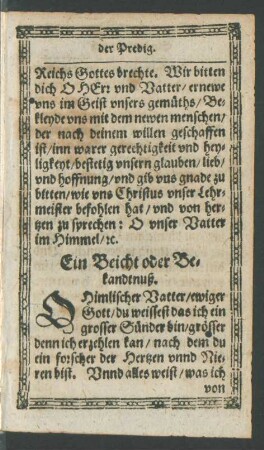 der Predig.
Reichs Gottes brechte. Wir bitten
dich O HErꝛ vnd Vatter / ernewe
vns im Geist vnsers gemüths / Be-
kleyde vns mit dem newen menschen /
der nach deinem willen geschaffen
ist / inn warer gerechtigkeit vnd hey-
ligkeyt / bestetig vnsern glauben / lieb /
vnd hoffnung / vnd gib vns gnade zu
bitten / wie vns Christus vnser Lehr-
meister befohlen hat / vnd von her-
tzen zu sprechen: O vnser Vatter
im Himmel / ꝛc.
Ein Beicht oder Be-
kandtnuß.
O Himlischer Vatter / ewiger
Gott / du weissest das ich ein
grosser Sünder bin / grösser
denn ich erzehlen kan / nach dem du
ein forscher der Hertzen vnnd Nie-
ren bist. Vnnd alles weist / was ich
von